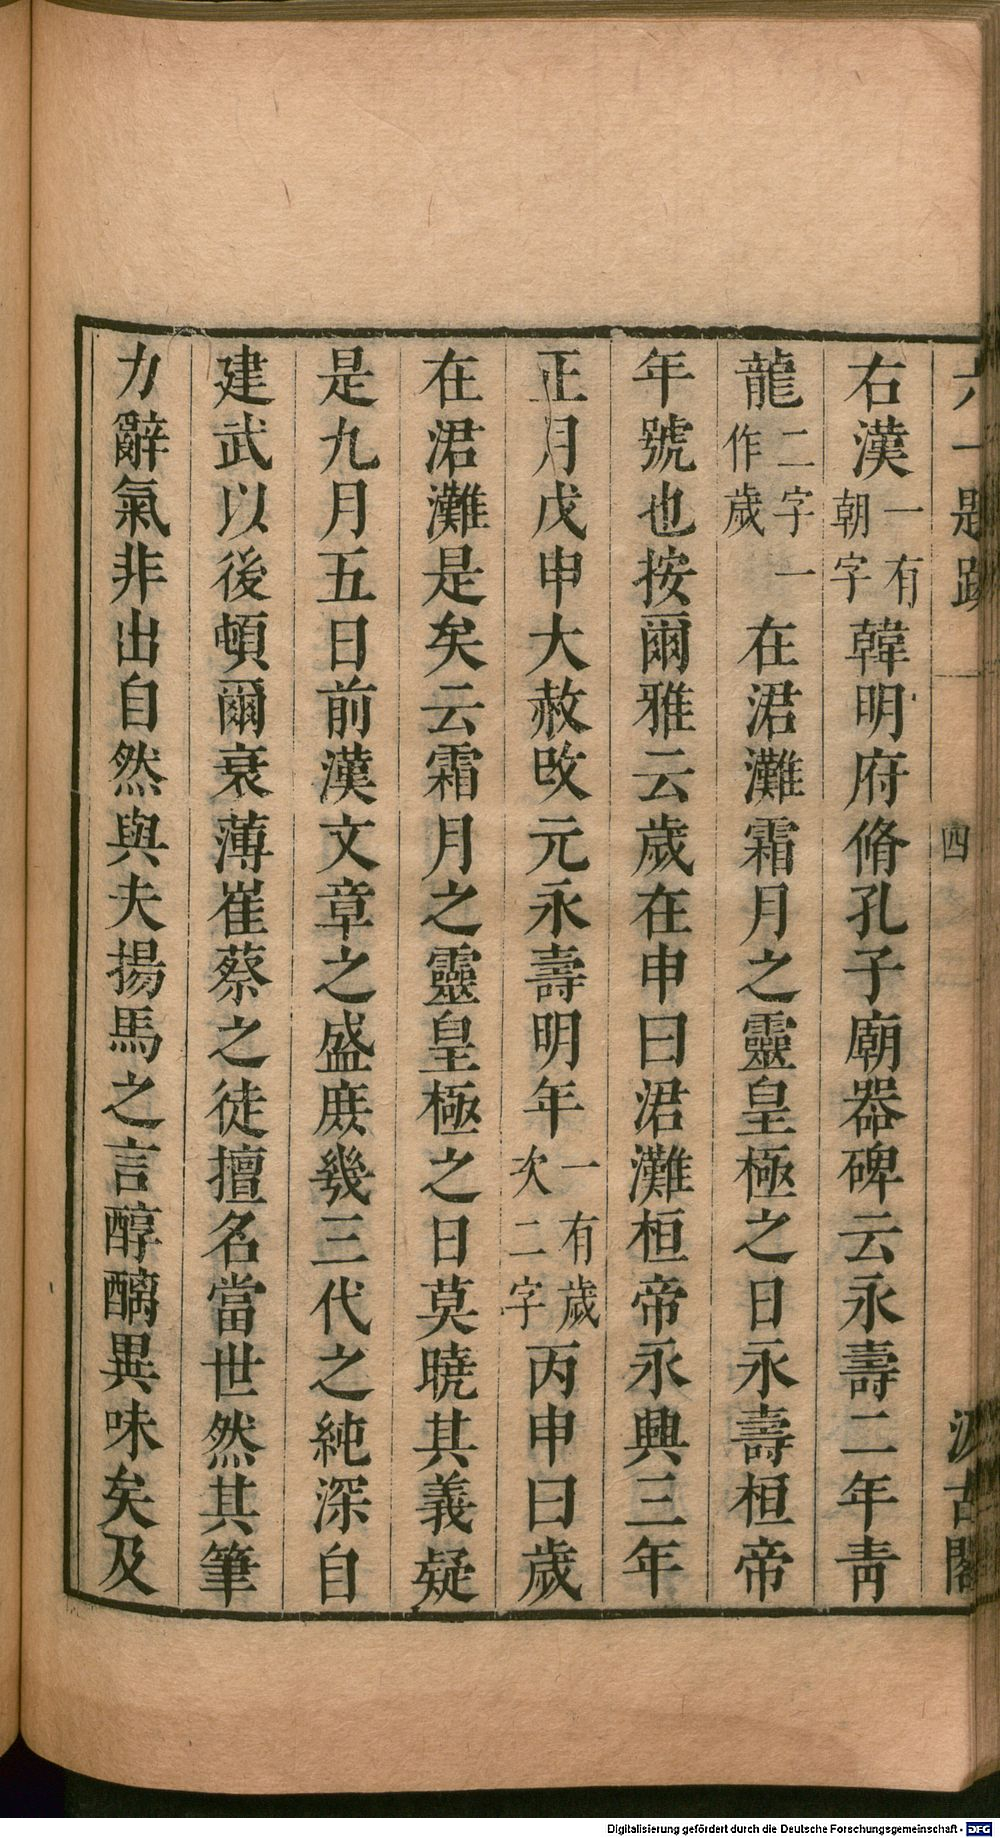 六一題跋 四 汲古閣
右漢一有朝字韓明府脩孔子廟器碑云永壽二年靑
龍二字一作歲在涒灘霜月之靈皇極之日永壽桓帝
年號也按爾雅云歲在申曰涒灘桓帝永興三年
正月戊申大赦改元永壽明年一有歲次二字丙申曰歲
在涒灘是矣云霜月之靈皇極之日莫曉其義疑
是九月五日前漢文章之盛庶幾三代之純深自
建武以後頓爾衰薄崔蔡之徒擅名當世然其筆
力辭氣非出自然與夫揚馬之言醇醨異味矣及
Digitalisierung gefördert durch die Deutsche Forschungsgemeinschaft - DFG